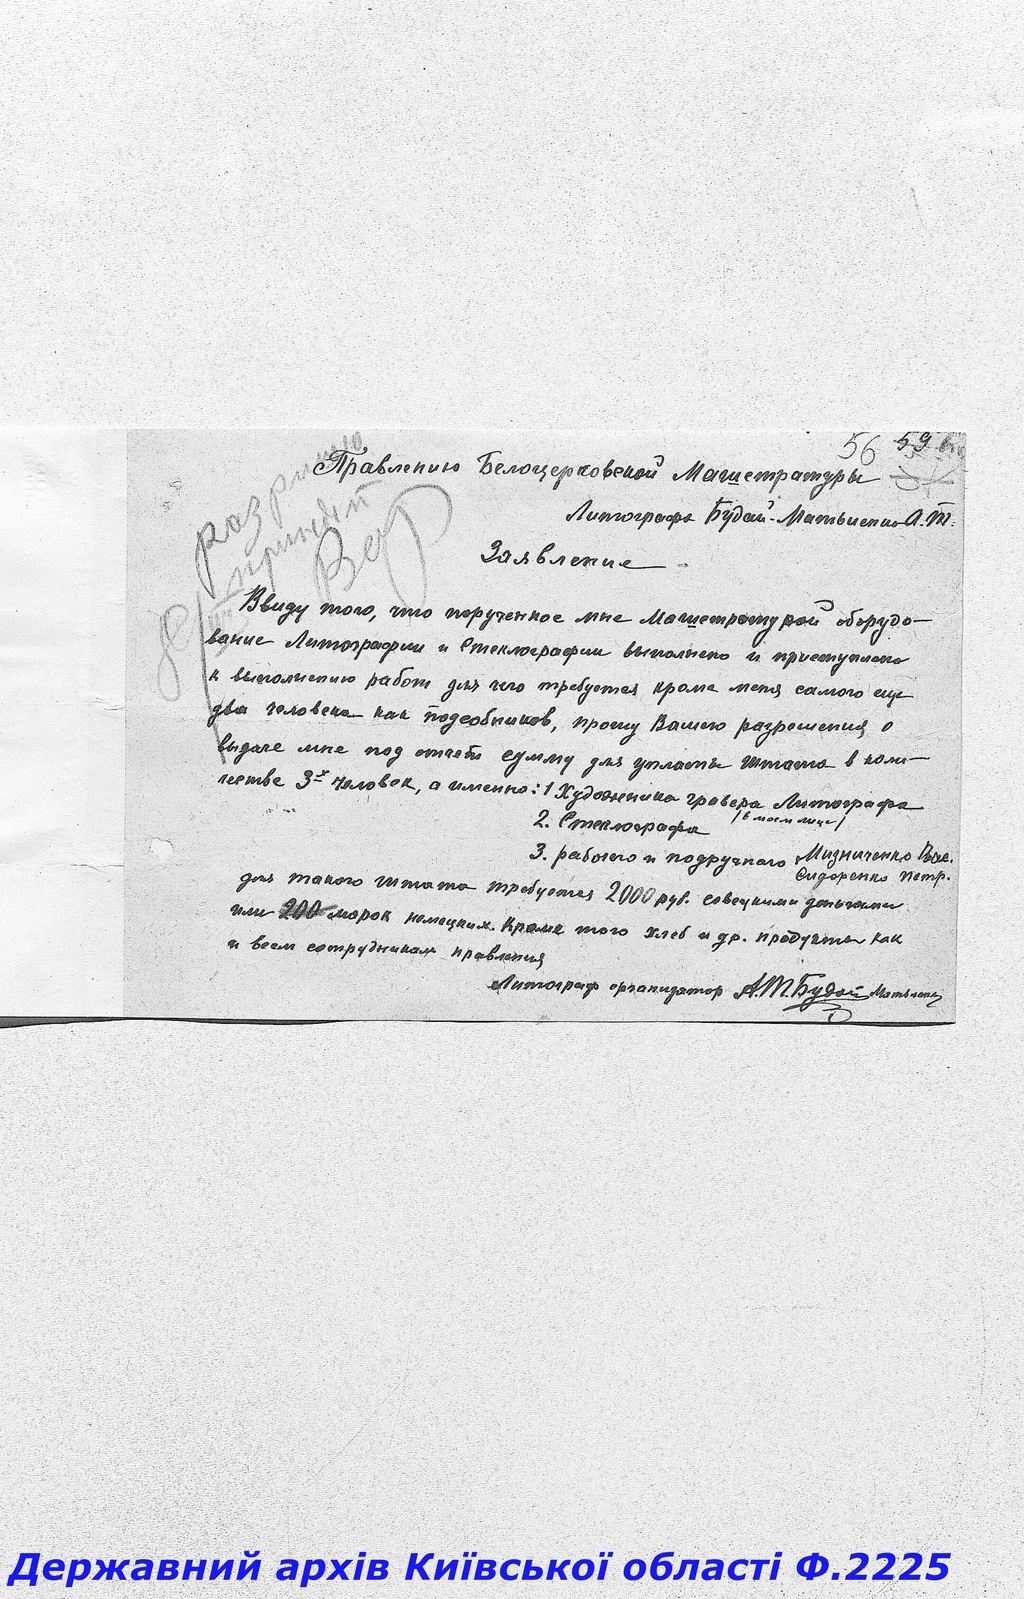 56 59
Правлению Белоцерковской Магшстратуры
Литографа Будай-Матвиенко А.Т.
Заявление
Ввиду того, что порученное мне Магшстратурой оборудо-
вание Литографии и Стеклографии выполнено и приступлено
к выполнению работ для чего требуется кроме меня самого еще
два человека как подсобников, прошу Вашего разрешения о
выдаче мне под отчет сумму для уплаты штата в коли-
честве 3х человек, а именно: 1 Художника гравера Литографа
2. Стеклографа (в моем лице)
3. рабочего и подручного Мизниченко
Сидоренко Петр.
для такого штата требуется 2000 руб. совецкими деньгами
или 200 марок немецких. Кроме того хлеб и др. продукты как
и всем сотрудникам правления
Литограф организатор А.Т. Будай Матвиенко
Державний архів Київської області Ф.2225